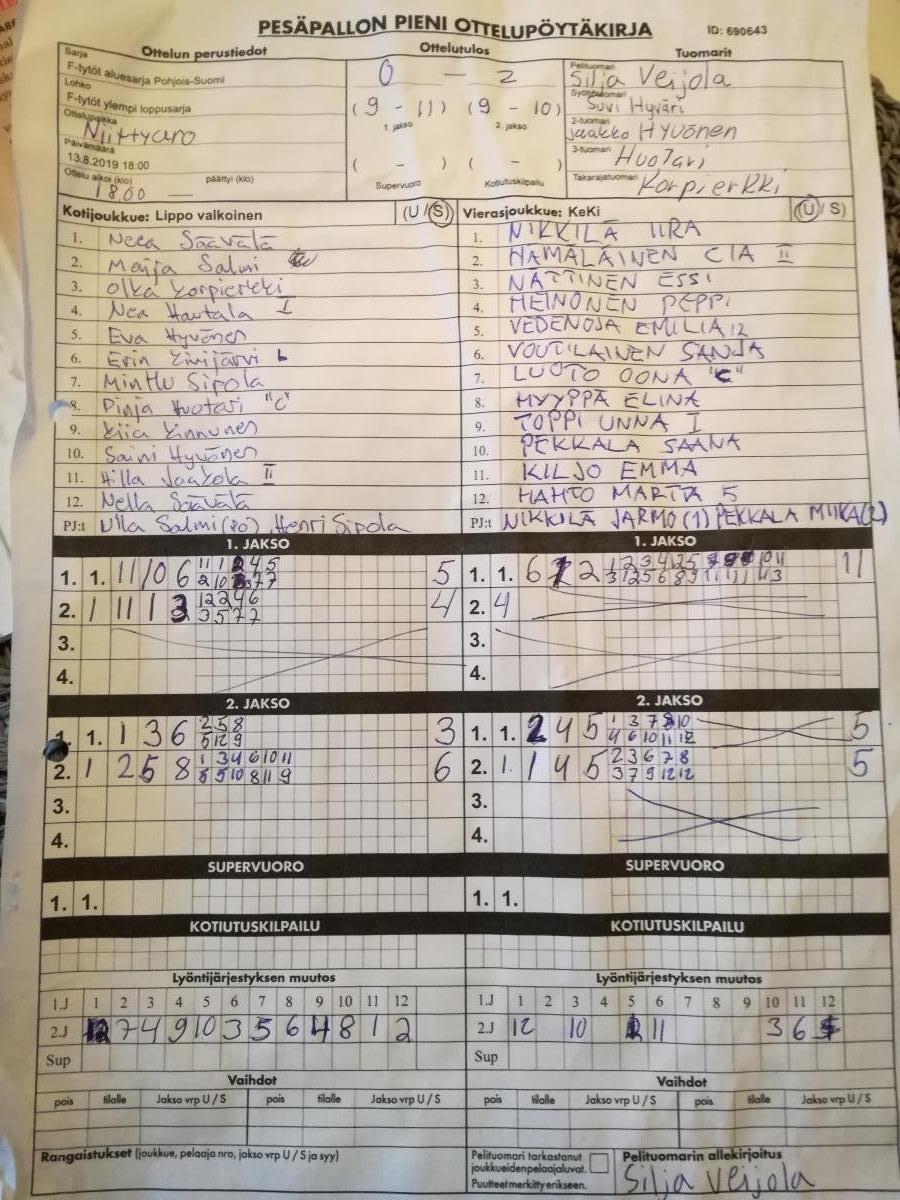 PESÄPALLON PIENI OTTELUPÖYTÄKIRJA ID: 690643
Ottelun perustiedot Ottelutulos Tuomarit
Sarja
F-tytöt aluesarja Pohjois-Suomi
Lohko
F-tytöt ylempi loppusarja
Ottelupaikka
Niittyaro
Päivämäärä
13.8.2019 18:00
Ottelu alkoi (klo) päättyi (klo)
18.00 —
0 - 2
(9 - 11) (9 - 10)
1. jakso 2. jakso
( - ) ( - )
Supervuoro Kotiutuskilpailu
Pelituomari
Silja Veijola
Syöttötuomari
Suvi Hyväri
2-tuomari
Jaakko Hyvönen
3-tuomari
Huotari
Takarajatuomari
Korpierkki
Kotijoukkue: Lippo valkoinen (U/S) Vierasjoukkue: KeKi (U/S)
1. Neea Säävälä 1. NIKKILÄ IIRA
2. Maija Salmi 2. HÄMÄLÄINEN CIA II
3. Olka Korpierkki 3. NÄTTINEN ESSI
4. Nea Hautala I 4. HEINONEN PEPPI
5. Eva Hyvönen 5. VEDENOJA EMILIA 12
6. Erin Kivijärvi 6. VOUTILAINEN SANJA
7. Minttu Sipola 7. LUOTO OONA "C"
8. Pinja Huotari "C" 8. HYYPPÄ ELINA
9. Kiia Kinnunen 9. TOPPI UNNA I
10. Saini Hyvönen 10. PEKKALA SAANA
11. Hilla Jaakola II 11. KILJO EMMA
12. Nella Säävälä 12. HAHTO MARTTA 5
PJ:t Ulla Salmi (80) Henri Sipola PJ:t NIKKILÄ JARMO (1) PEKKALA MIIKA (2)
1. JAKSO 1. JAKSO
1. 1. 11 10 6 5 1. 1. 6 2 11
2. 1 11 1 3 4 2. 4
3. 3.
4. 4.
2. JAKSO 2. JAKSO
1. 1. 1 3 6 2 5 8 3 1. 1. 2 4 5 1 3 7 8 10 5
5 12 9 4 6 10 11 12
2. 1 2 5 8 1 3 4 6 10 11 6 2. 1. 1 4 5 2 3 6 7 8 5
5 9 10 8 11 9 3 7 9 12 12
3. 3.
4. 4.
SUPERVUORO SUPERVUORO
1. 1. 1. 1.
KOTIUTUSKILPAILU KOTIUTUSKILPAILU
Lyöntijärjestyksen muutos Lyöntijärjestyksen muutos
1.J 1 2 3 4 5 6 7 8 9 10 11 12 1.J 1 2 3 4 5 6 7 8 9 10 11 12
2.J 12 7 4 9 10 3 5 6 4 8 1 2 2.J 12 10 11 3 6
Sup Sup
Vaihdot Vaihdot
pois tilalle Jakso vrp U / S pois tilalle Jakso vrp U / S pois tilalle Jakso vrp U / S pois tilalle Jakso vrp U / S
Rangaistukset (joukkue, pelaaja nro, jakso vrp U / S ja syy)
Pelituomari tarkastanut
joukkueiden pelaajaluvat.
Puutteet merkitty erikseen.
Pelituomarin allekirjoitus
Silja Veijola